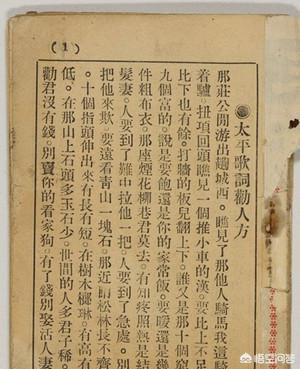 (1)
●太平歌詞勸人方
那莊公閒游出趟城西。瞧見了那他人騎馬我這騎
着驢。扭項回頭瞧見一個推小車的漢。要比上不足
比下也有餘。打牆的板兒翻上下。誰又是那十個窮
九個富的。說是要飽還是你的家常飯。要暖還是幾
件粗布衣。那座煙花柳巷君莫去。有知疼照熱是結
髮妻。人要到了難中拉他一把。人要到了急處。別
把他來欺。要遠看青山一塊石。那近講松林長不齊
。十個指頭伸出來有長有短。在樹木榔琳。有高有
低。在那山上石頭多玉石少。世間的人多君子稀。
勸君沒有錢。別賣你的看家狗。有了錢別娶活人妻
悟空问答